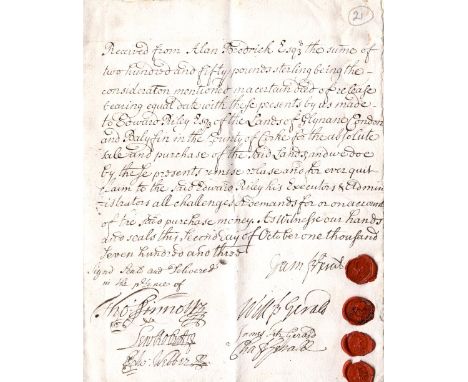 21
Received from Alan Brodrick Esqr the sume of
two hundred and fifty pounds sterling being the
consideraton mentioned in a certain deed of release
bearing equal date with these presents by us made
to Edward Riley Esqr of the Lands of Glynane Condon
and Balyfin in the County of Corke for the absolute
sale and purchase of the said Lands, and wee doe
by these presents remise release and for ever quit
claim to the said Edward Riley his Executors & Admin
istrators all challenges & demands for or on account
of the said purchase money. As Witnesse our hands
and seals this second day of October one thousand
seven hundred and three
Signd Seald and Delivered
in the psence of
Tho: Sinnott
Will ffz Gerald
James ffz Gerald
Webber